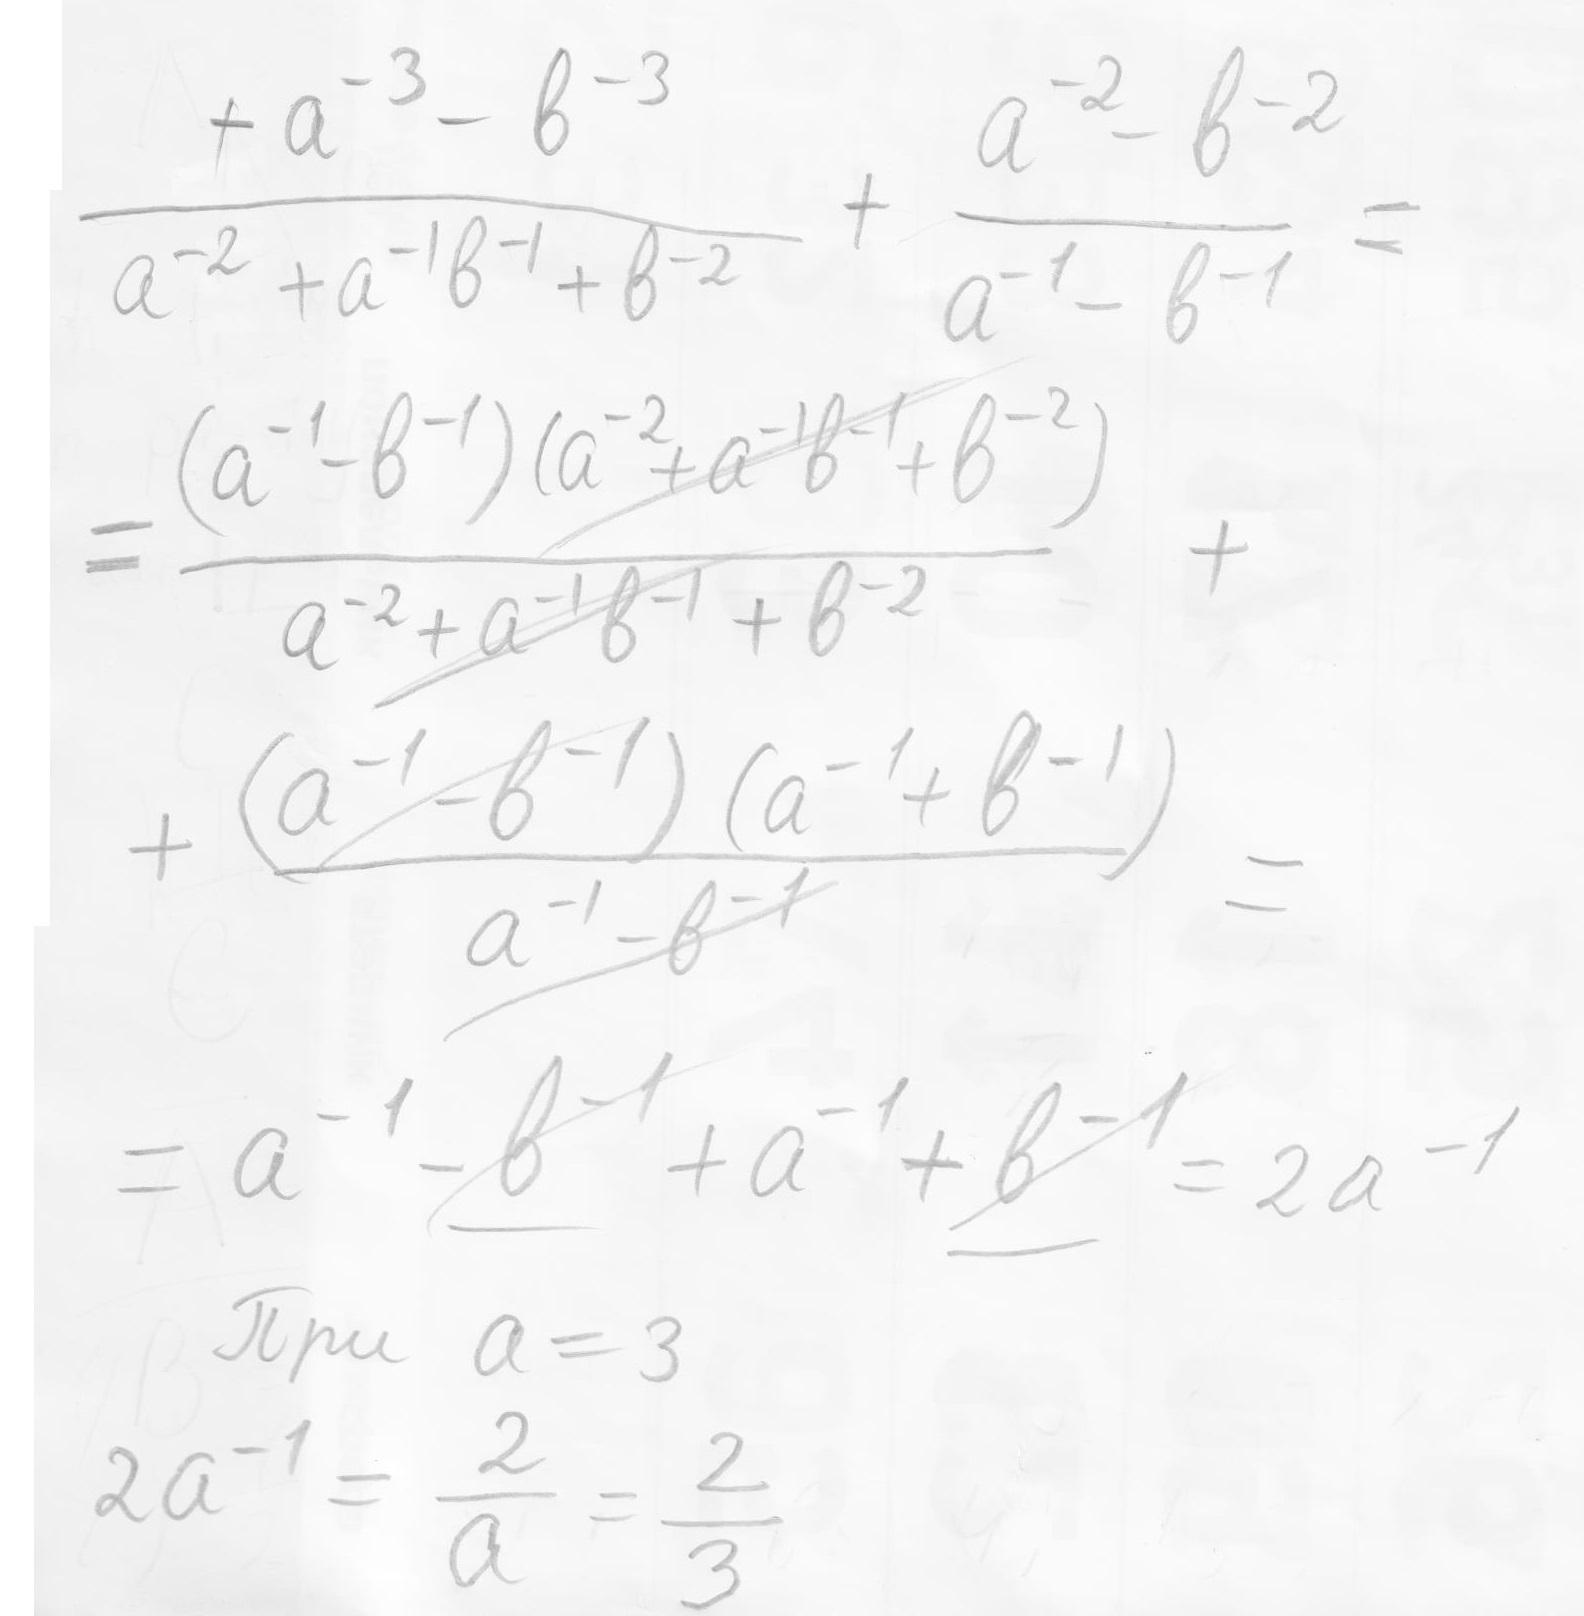 (+a⁻³ - b⁻³)/(a⁻² + a⁻¹b⁻¹ + b⁻²) + (a⁻² - b⁻²)/(a⁻¹ - b⁻¹) =
= ((a⁻¹ - b⁻¹)(a⁻² + a⁻¹b⁻¹ + b⁻²))/(a⁻² + a⁻¹b⁻¹ + b⁻²) +
+ ((a⁻¹ - b⁻¹)(a⁻¹ + b⁻¹))/(a⁻¹ - b⁻¹) =
= a⁻¹ - b⁻¹ + a⁻¹ + b⁻¹ = 2a⁻¹
При a = 3
2a⁻¹ = 2/a = 2/3